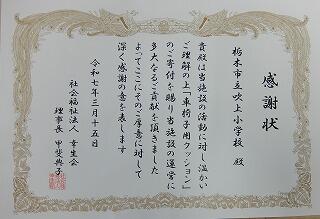 感謝状
栃木市立吹上小学校 殿
貴殿は当施設の活動に対し温かい
ご理解の上「車椅子用クッション」
のご寄付を賜り当施設の運営に
多大なるご貢献を頂きました
よってここにそのご厚意に対して
深く感謝の意を表します
令和七年三月十五日
社会福祉法人 幸生会
理事長 甲斐典子